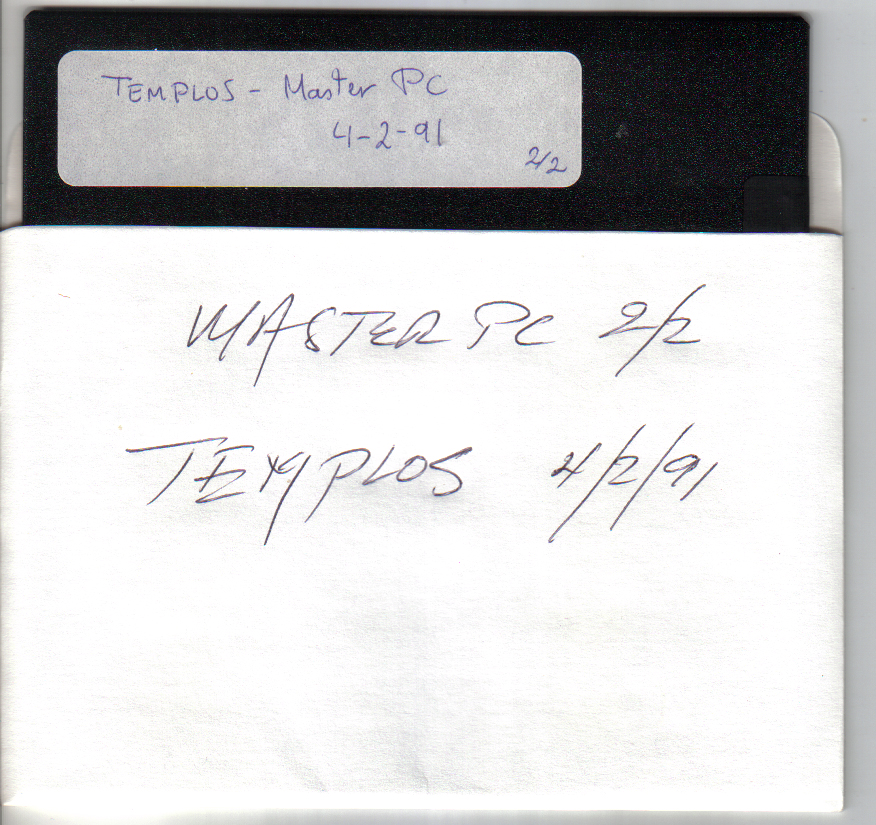 TEMPLOS - Master PC
4-2-91
2/2
MASTER PC 2/2
TEMPLOS 4/2/91